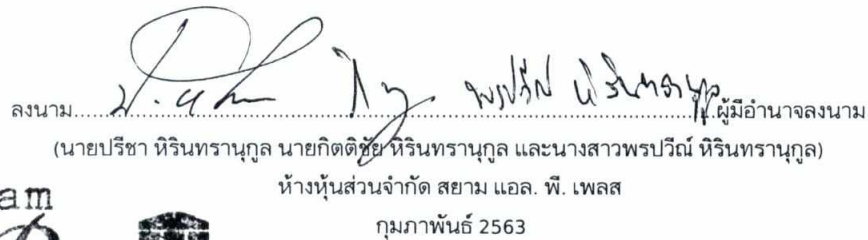 ลงนาม พรปวีณ์ หิรินทรานุกูล ผู้มีอำนาจลงนาม
(นายปรีชา หิรินทรานุกูล นายกิตติชัย หิรินทรานุกูล และนางสาวพรปวีณ์ หิรินทรานุกูล)
ห้างหุ้นส่วนจำกัด สยาม แอล. พี. เพลส
กุมภาพันธ์ 2563
am